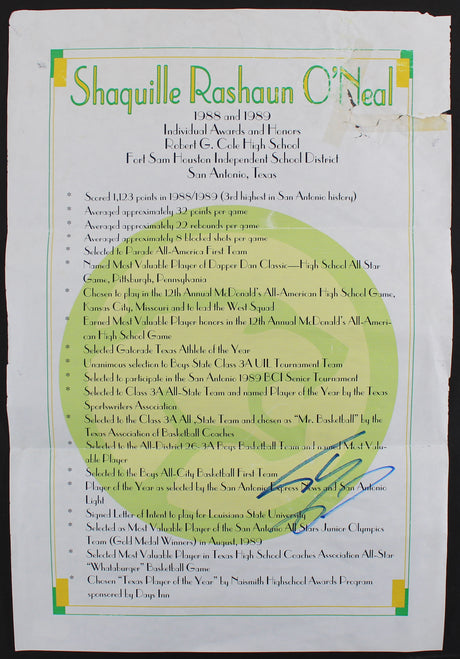 Shaquille Rashaun O'Neal
1988 and 1989
Individual Awards and Honors
Robert G. Cole High School
Fort Sam Houston Independent School District
San Antonio, Texas
* Scored 1,123 points in 1988/1989 (3rd highest in San Antonio history)
* Averaged approximately 32 points per game
* Averaged approximately 22 rebounds per game
* Averaged approximately 8 blocked shots per game
* Selected to Parade All-America First Team
* Named Most Valuable Player of Dapper Dan Classic—High School All Star
Game, Pittsburg, Pennsylvania
* Chosen to play in the 12th Annual McDonald's All-American High School Game,
Kansas City, Missouri and to lead the West Squad
* Earned Most Valuable Player honors in the 12th Annual McDonald's All-Ameri-
can High School Game
* Selected Gatorade Texas Athlete of the Year
* Unanimous selection to Boys State Class 3A UIL Tournament Team
* Selected to participate in the San Antonio 1989 BCI Senior Tournament
* Selected to Class 3A All-State Team and named Player of the Year by the Texas
Sportswriters Association
* Selected to the Class 3A All State Team and chosen as "Mr. Basketball" by the
Texas Association of Basketball Coaches
* Selected to the All-District 26-3A Boys Basketball Team and named Most Valu-
able Player
* Selected to the Boys All-City Basketball First Team
* Player of the Year as selected by the San Antonio Express News and San Antonio
Light
* Signed Letter of Intent to play for Louisiana State University
* Selected as Most Valuable Player of the San Antonio All Stars Junior Olympics
Team (Gold Medal Winners) in August, 1989
* Selected Most Valuable Player in Texas High School Coaches Association All-Star
"Whataburger" Basketball Game
* Chosen "Texas Player of the Year" by Naismith Highschool Awards Program
sponsored by Days Inn